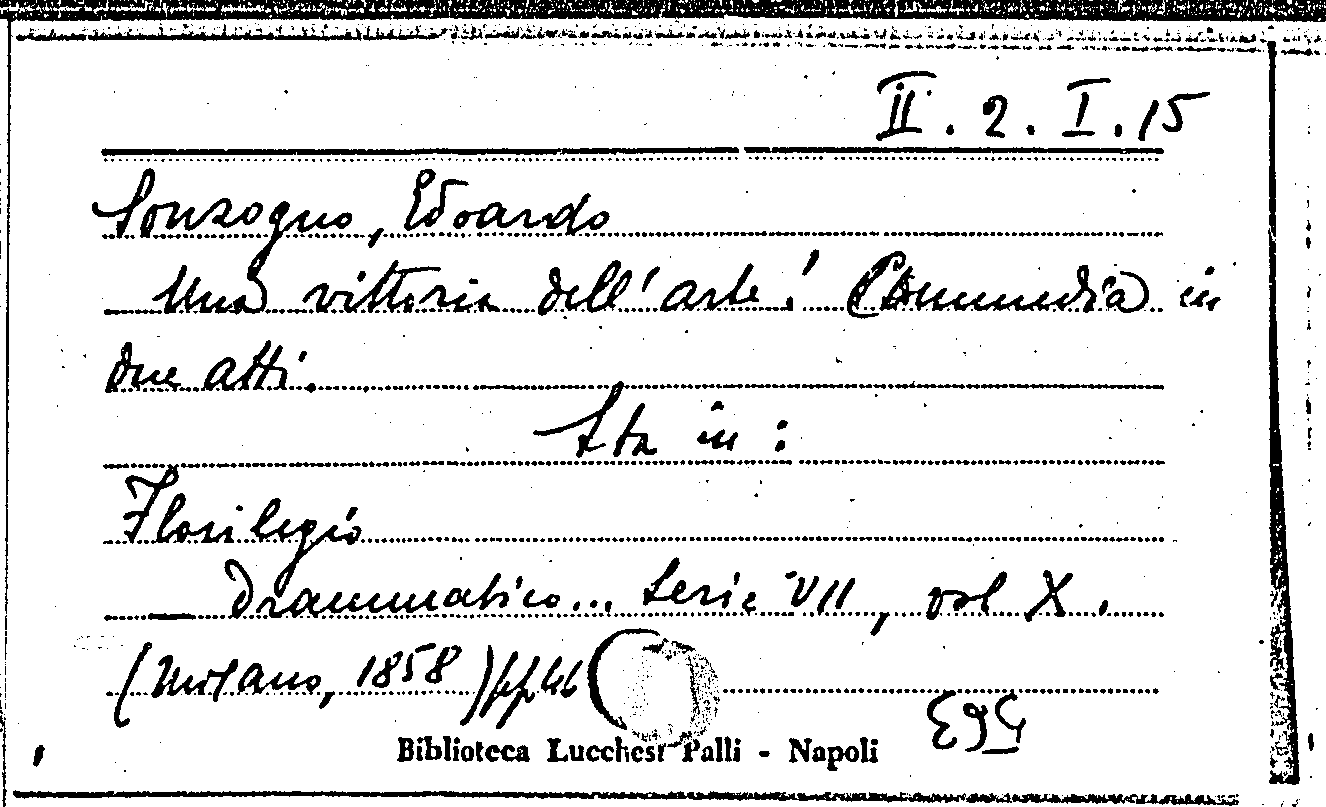 II. 2. I. 15
Sonzogno, Edoardo
Una vittoria dell'arte! Commedia in
due atti.
Sta in:
Florilegio
— drammatico... Serie VII, vol X.
(Milano, 1858) pp 46
Biblioteca Lucchesi Palli - Napoli